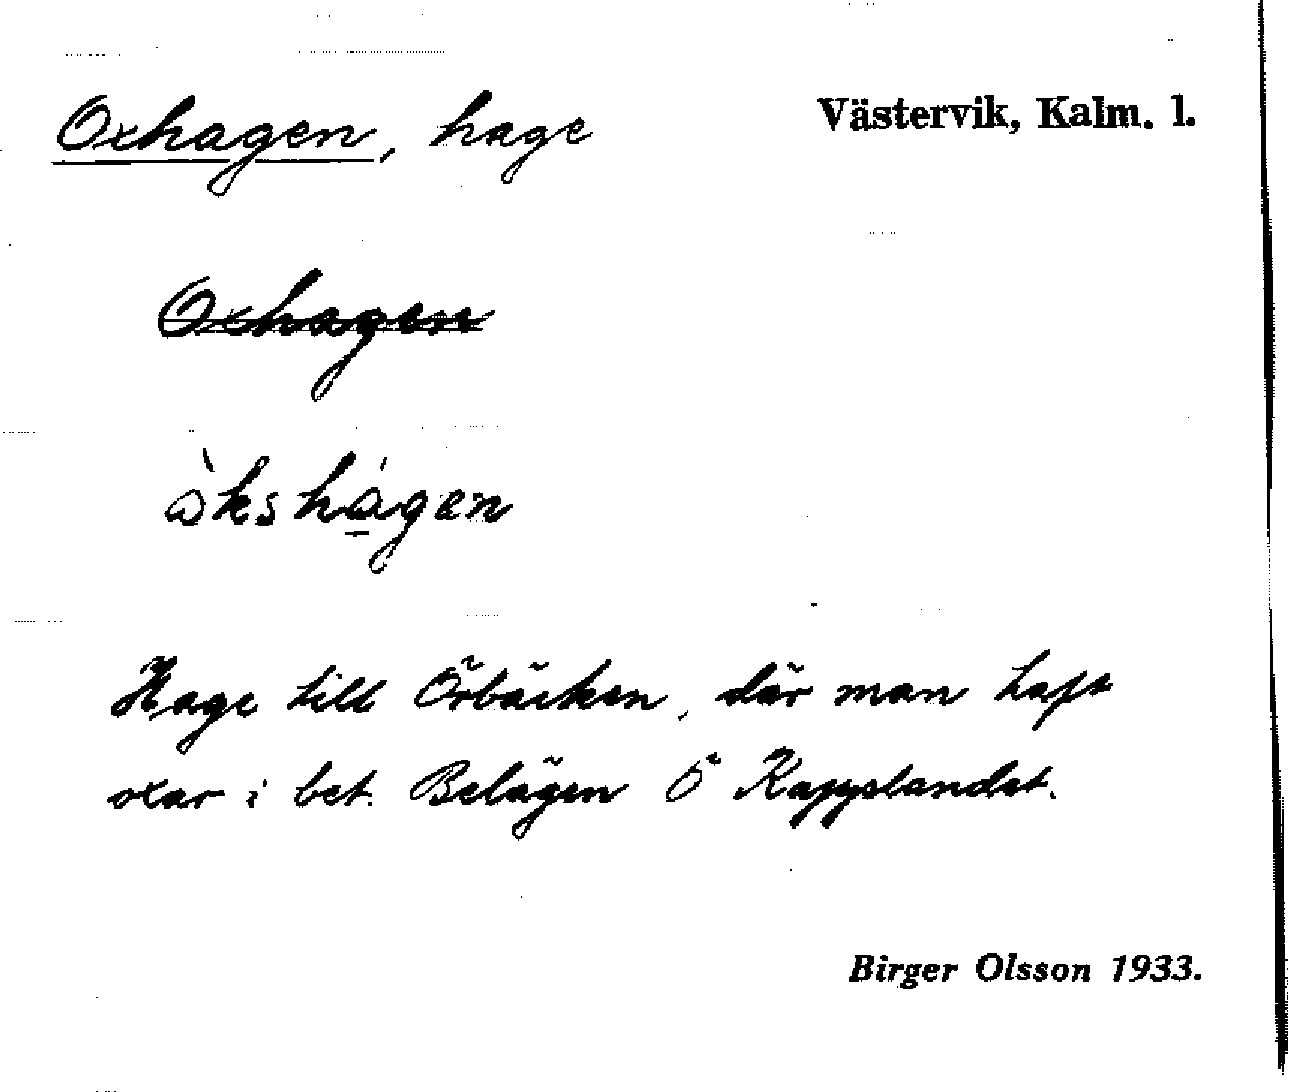 Oxhagen, hage
Västervik, Kalm. l.
Oxhagen
òkshá̱gen
Hage till Örbäcken, där man haft
oxar i bet. Belägen Ö Kappslandet.
Birger Olsson 1933.